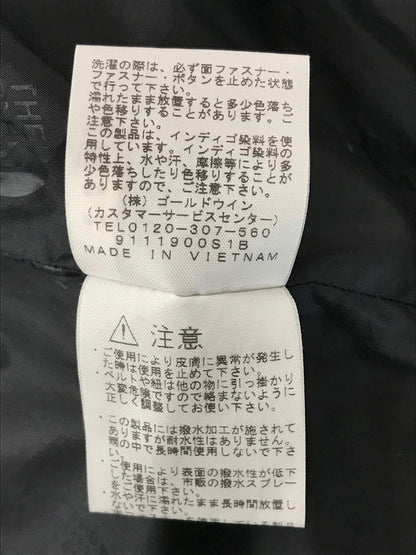 洗濯の際は、必ず面ファスナー・
ファスナー・ボタンを止めた状態
で行って下さい。
濡れたまま放置すると多少色落ち
や色移りすることがあります。ご
注意下さい。
この製品は、インディゴ染料を使
用しています。インディゴ染料の
特性上、水や汗、摩擦等により多
少色落ちしたり色移りすることが
ありますので、ご注意下さい。
(株) ゴールドウイン
(カスタマーサービスセンター)
TEL0120-307-560
9111900S1B
MADE IN VIETNAM
注意
・ご使用により皮膚に異常が発生し
た時は使用を止めて下さい。
・ベルトや紐は他の物に引っ掛かり
大変危険ですので絡まないように
正しく調整してお使い下さい。
・この製品には撥水加工が施されて
ありますが耐水性はありません。
雨の中で長時間使用しないで下さ
い。
・ご使用により表面の撥水性が低下
した場合は、市販の撥水スプレー
をご使用下さい。
・水や汗に濡れたまま長時間放置し
ないで下さい。
THE